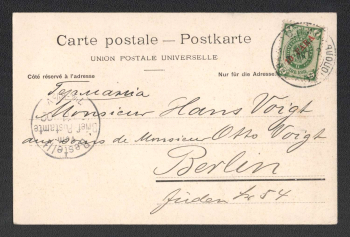 Carte postale — Postkarte
UNION POSTALE UNIVERSELLE
Côté réservé à l'adresse Nur für die Adresse
Германия
Monsieur Hans Voigt
aux soins de Monsieur Otto Voigt
Berlin
Jüden Str 54
Bestellt
Postamte